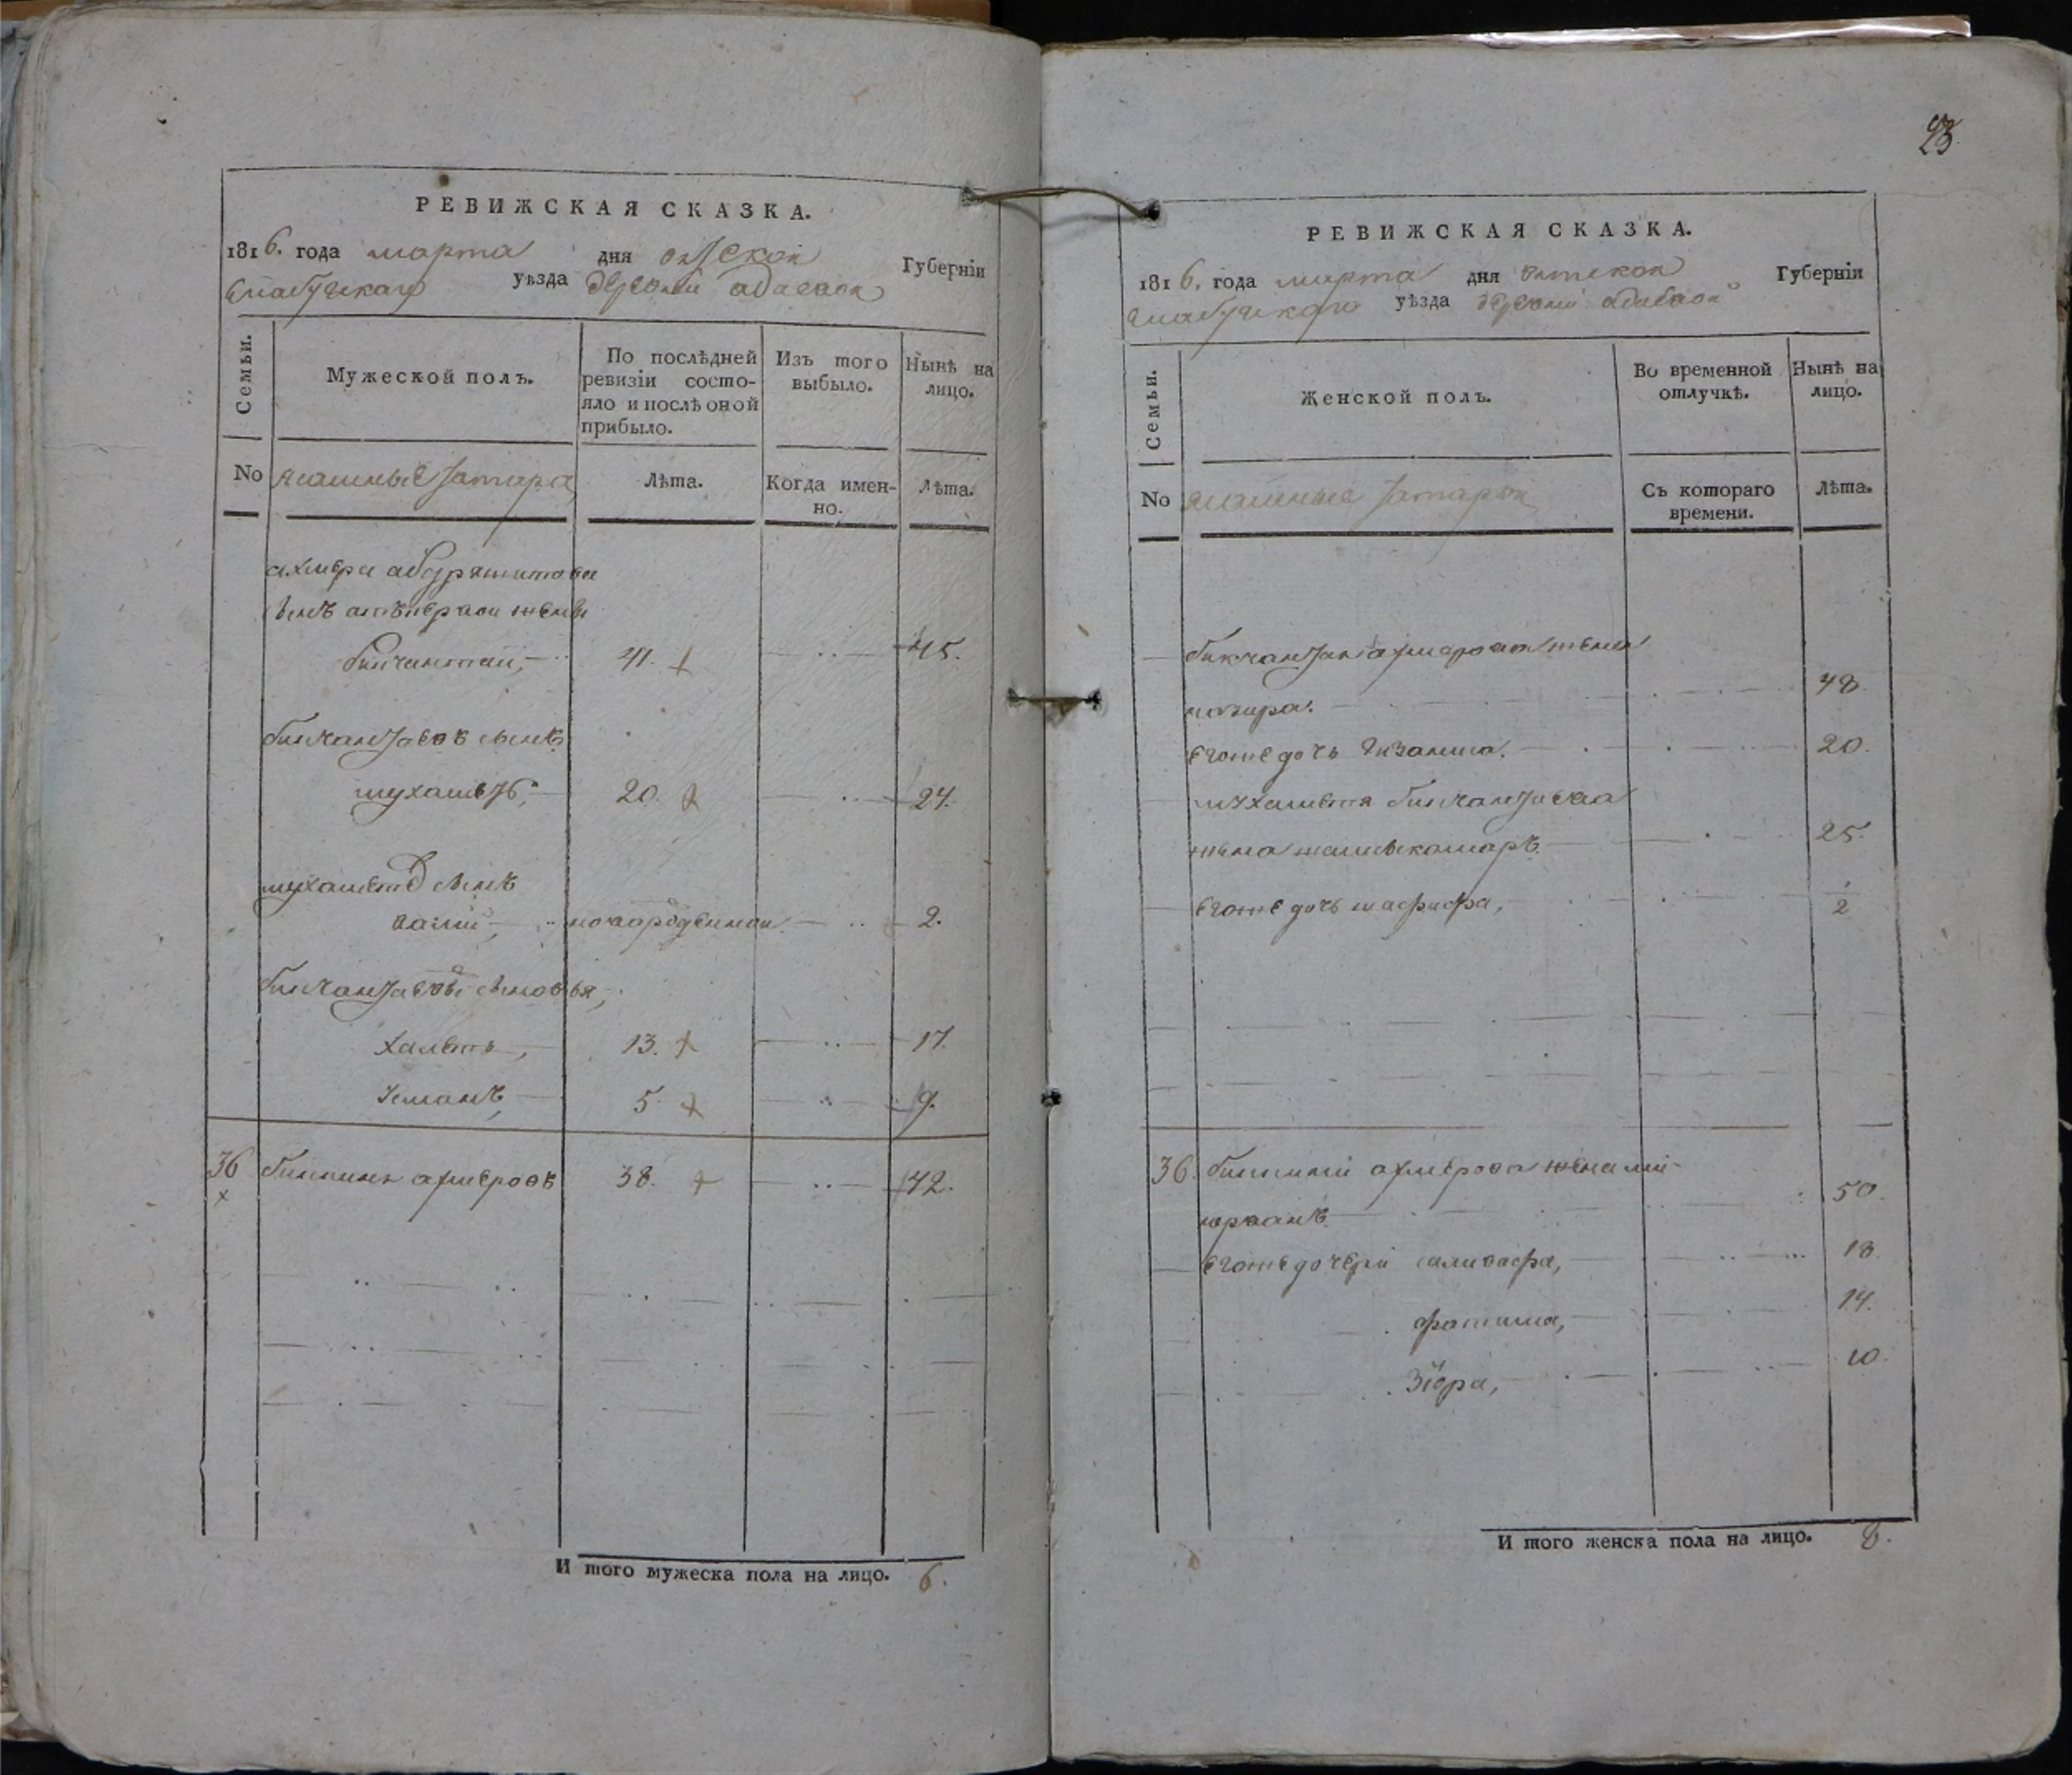 РЕВИЖСКАЯ СКАЗКА.
1816. года марта дня вятской Губерніи
елабужскаго уѣзда деревни адаевой
Семьи.
Мужеской полъ.
По послѣдней
ревизіи состо-
яло и послѣ оной
прибыло.
Изъ того
выбыло.
Нынѣ на
лицо.
No ясашные татара
Лѣта.
Когда имен-
но.
Лѣта.
ахмера
сынъ отъ первой жены
бикчантай, 41. 45.
бикчантаевъ сынъ
мухаметъ, 20. 24.
мухаметевъ сынъ
валий, новорожденной 2.
бикчантаевы сыновья,
халетъ, 13. 17.
усманъ, 5. 9.
36 ахмеровъ 38. 42.
И того мужеска пола на лицо. 6.
23
РЕВИЖСКАЯ СКАЗКА.
1816. года марта дня вятской Губерніи
елабужскаго уѣзда деревни адаевой
Семьи.
Женской полъ.
Во временной
отлучкѣ.
Нынѣ на
лицо.
No ясашные татарки
Съ котораго
времени.
Лѣта.
бикчантая ахмерова жена
48.
егоже дочь 20.
мухаметя бикчантаева
жена 25.
егоже дочь 2
36. ахмерова жена
50.
егоже дочери 18.
фатима, 14.
10.
И того женска пола на лицо. 8.